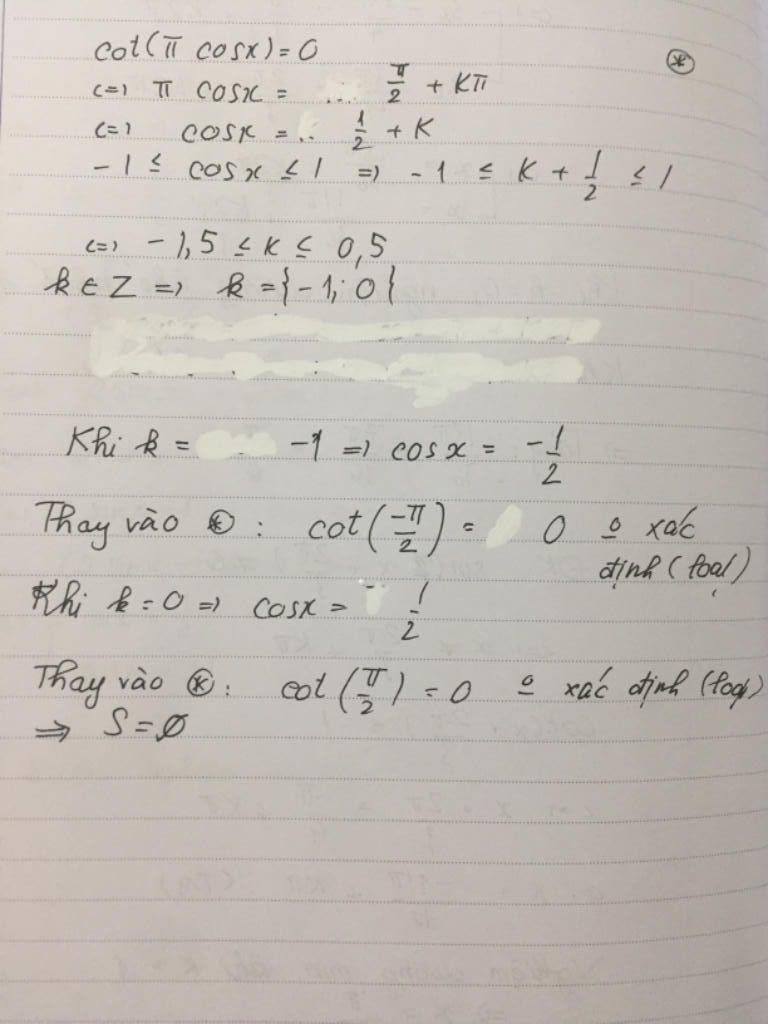 cot(π cosx) = 0 ⊛
<=> π cosx = ... π/2 + Kπ
<=> cosx = .. 1/2 + K
-1 ≤ cosx ≤ 1 => -1 ≤ K + 1/2 ≤ 1
<=> -1,5 ≤ K ≤ 0,5
k ∈ Z => k = {-1; 0}
Khi k = -1 => cosx = -1/2
Thay vào ⊛ : cot(-π/2) = 0 o xác
định (loại)
Khi k = 0 => cosx = 1/2
Thay vào ⊛ : cot(π/2) = 0 o xác định (loại)
=> S = ∅